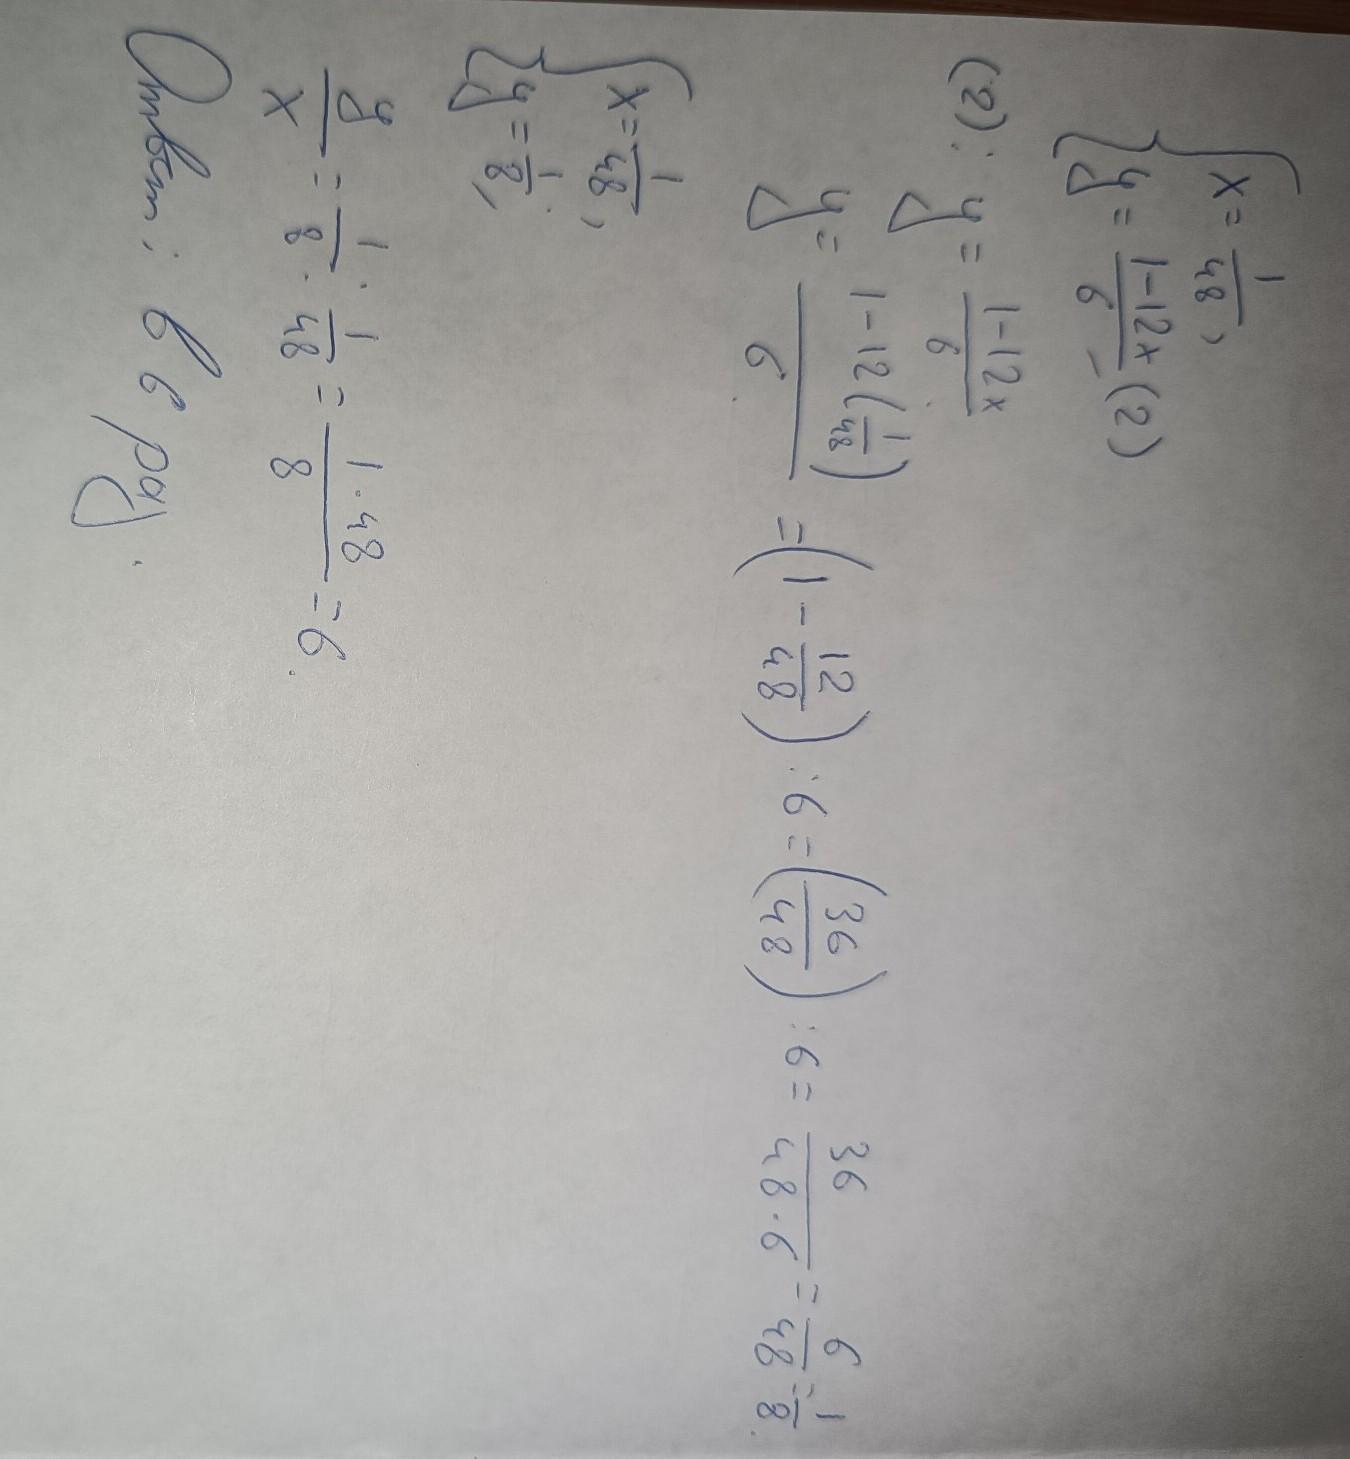 { x = 1/48,
{ y = (1-12x)/6 (2)
(2): y = (1-12x)/6
y = (1-12(1/48))/6 = (1 - 12/48) : 6 = (36/48) : 6 = 36/(48·6) = 6/48 = 1/8.
{ x = 1/48,
{ y = 1/8,
y/x = 1/8 · 1/48 = (1·48)/8 = 6.
Ответ: в 6 раз.